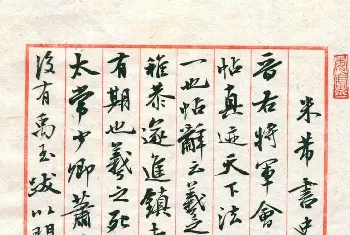 米芾書史
晉右將軍會
帖真迹天下法
一也帖辭云羲之
雅恭邃進鎮
有期也羲之死
太常少卿蕭
後有禹玉跋以門